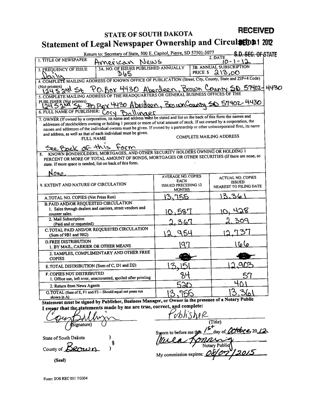 RECEIVED
STATE OF SOUTH DAKOTA
Statement of Legal Newspaper Ownership and Circulation
OCT 01 2012
Return to: Secretary of State, 500 E. Capitol, Pierre, SD 57501-5077
S.D. SEC. OF STATE
1. TITLE OF NEWSPAPER
American News
2. DATE
10-1-12
3. FREQUENCY OF ISSUE
Daily
3A. NO. OF ISSUES PUBLISHED ANNUALLY
365
3B. ANNUAL SUBSCRIPTION
PRICE $ 213.00
4. COMPLETE MAILING ADDRESS OF KNOWN OFFICE OF PUBLICATION (Street, City, County, State and ZIP+4 Code)
(Not printer)
PO Box 4430 Aberdeen, Brown County SD 57402-4430
5. COMPLETE MAILING ADDRESS OF THE HEADQUARTERS OR GENERAL BUSINESS OFFICES OF THE
PUBLISHER (Not printer)
PO Box 4430 Aberdeen, Brown County SD 57402-4430
6. FULL NAME OF PUBLISHER: Cory Bollinger
7. OWNER (If owned by a corporation, its name and address must be stated and list on the back of this form the names and
addresses of stockholders owning or holding 1 percent or more of total amount of stock. If not owned by a corporation, the
names and addresses of the individual owners must be given. If owned by a partnership or other unincorporated firm, its name
and address, as well as that of each individual must be given.
FULL NAME
COMPLETE MAILING ADDRESS
See Back of this Form
8. KNOWN BONDHOLDERS, MORTGAGEES, AND OTHER SECURITY HOLDERS OWNING OR HOLDING 1
PERCENT OR MORE OF TOTAL AMOUNT OF BONDS, MORTGAGES OR OTHER SECURITIES (If there are none, so
state. If more space is needed, list on back of this form.
None
9. EXTENT AND NATURE OF CIRCULATION
AVERAGE NO. COPIES
EACH
ISSUED PRECEDING 12
MONTHS
ACTUAL NO. COPIES
ISSUED
NEAREST TO FILING DATE
A. TOTAL NO. COPIES (Net Press Run)
13,755
13,361
B. PAID AND/OR REQUESTED CIRCULATION
1. Sales through dealers and carriers, street vendors and
counter sales
10,587
10,428
2. Mail Subscription
(Paid and/or requested)
2,367
2,309
C. TOTAL PAID AND/OR REQUESTED CIRCULATION
(Sum of 9B1 and 9B2)
12,954
12,737
D. FREE DISTRIBUTION
1. BY MAIL, CARRIER OR OTHER MEANS
197
166
2. SAMPLES, COMPLIMENTARY AND OTHER FREE
COPIES
E. TOTAL DISTRIBUTION (Sum of C, D1 and D2)
13,151
12,903
F. COPIES NOT DISTRIBUTED
1. Office use, left over, unaccounted, spoiled after printing
84
57
2. Return from News Agents
520
401
G. TOTAL (Sum of E, F1 and F2 - Should equal net press run
shown in A)
13,755
13,361
Statement must be signed by Publisher, Business Manager, or Owner in the presence of a Notary Public
I swear that the statements made by me are true, correct, and complete:
Cory Bollinger
Publisher
(Signature)
(Title)
State of South Dakota )
County of Brown )
§
Sworn to before me this 1st day of October, 20 12
Notary Public
(Seal)
My commission expires: 04/07/2015